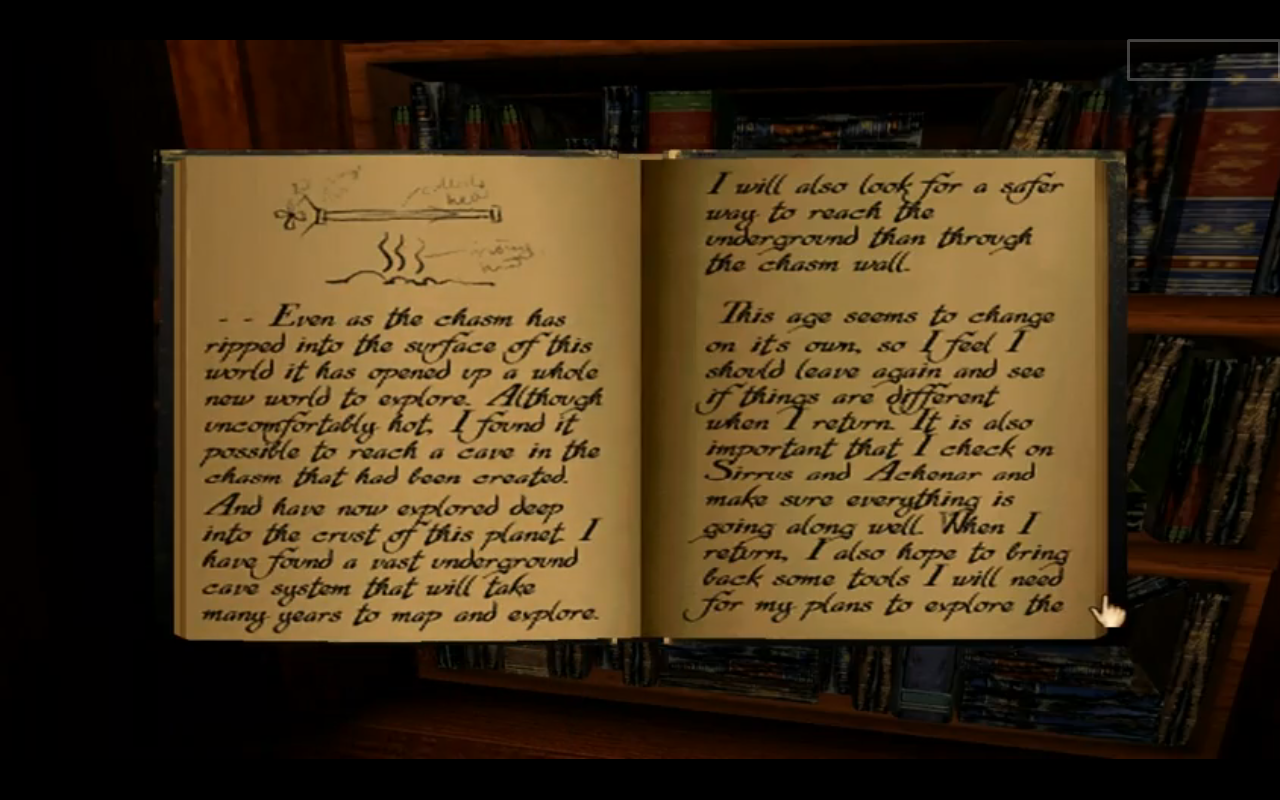 collects
heat
- - Even as the chasm has
ripped into the surface of this
world it has opened up a whole
new world to explore. Although
uncomfortably hot, I found it
possible to reach a cave in the
chasm that had been created.
And have now explored deep
into the crust of this planet. I
have found a vast underground
cave system that will take
many years to map and explore.
I will also look for a safer
way to reach the
underground than through
the chasm wall.
This age seems to change
on its own, so I feel I
should leave again and see
if things are different
when I return. It is also
important that I check on
Sirrus and Achenar and
make sure everything is
going along well. When I
return, I also hope to bring
back some tools I will need
for my plans to explore the